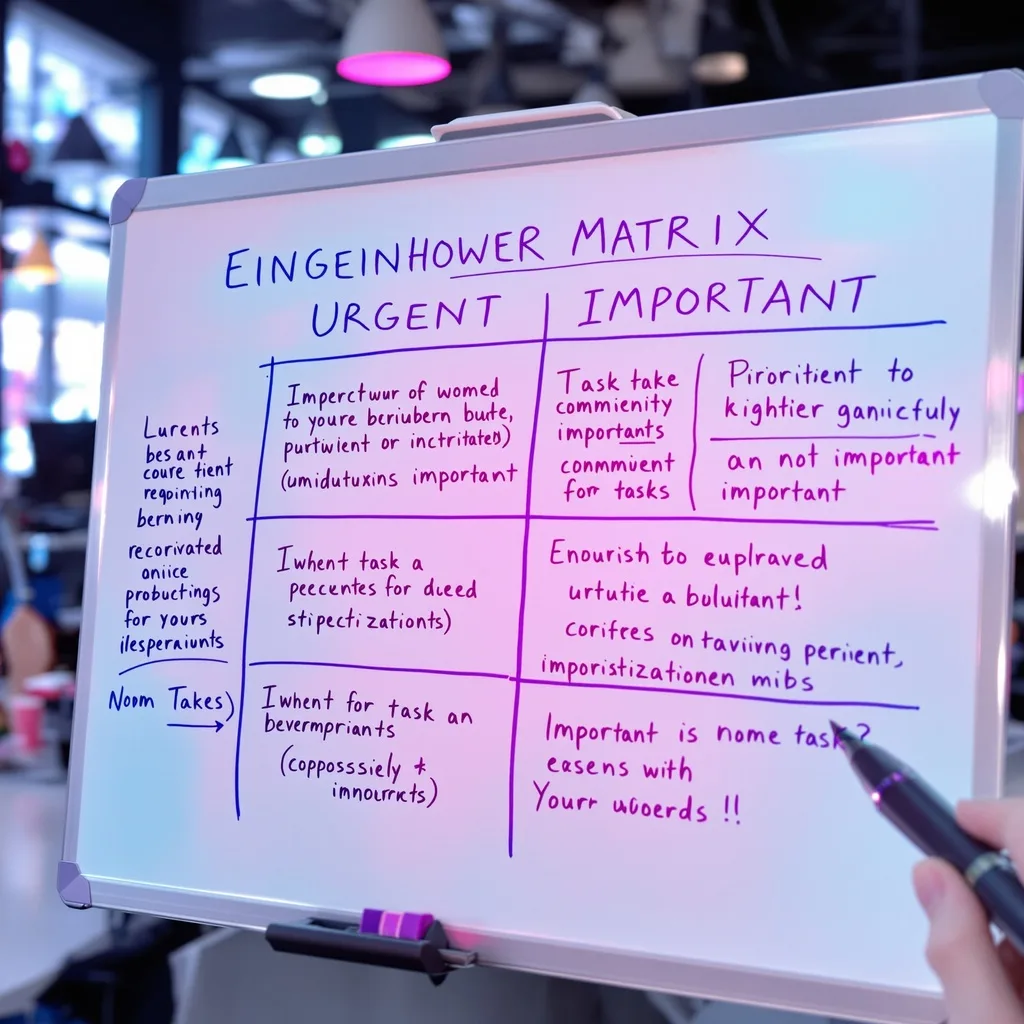 EINGEINHOWER MATRIX
URGENT
IMPORTANT
Lurents
bes ant
coure tient
regointing
berning
recorivated
oniice
productings
for yours
ilesperaiunts
Noom Takes)
Imperctwur of womed
to youre beriubern bute,
purtivient or inctritated)
(umidutuxins important
Task take
commienity
importants
conmmient
for tasks
Pirioritient to
kightier ganicfuly
an not important
important
Iwhent task a
peecentes for dueed
stipectizationts)
Enourish to euplraved
urtutie a buluitant!
corifces on taviivng perient,
imporistizationen mibs
Iwhent for task an
bevermpriants
(copposssiely +
innourrcts)
Important is nome task?
easens with
Yourr uooerds !!